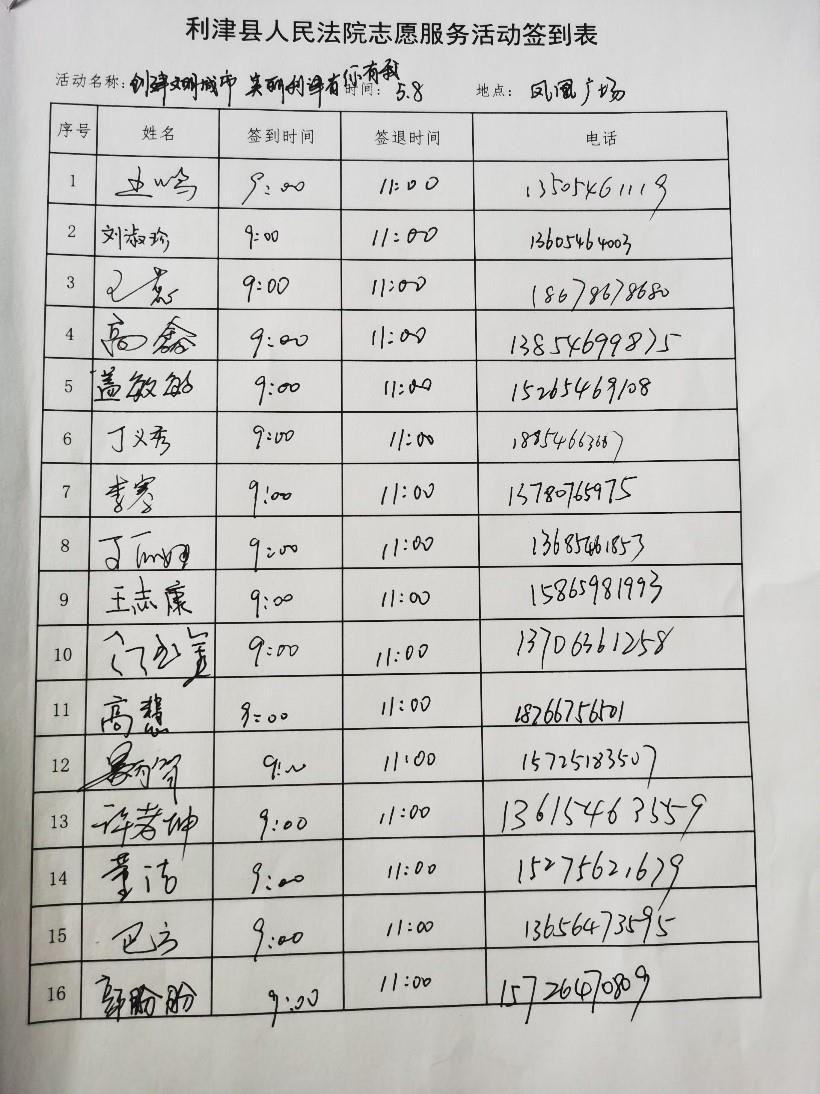 利津县人民法院志愿服务活动签到表
活动名称：创建文明城市 美丽利津有你有我 时间：5.8 地点：凤凰广场
序号 姓名 签到时间 签退时间 电话
1 9:00 11:00 13505461119
2 刘淑珍 9:00 11:00 13605464003
3 9:00 11:00 18678678680
4 高鑫 9:00 11:00 13854699875
5 盖敏敏 9:00 11:00 15265469108
6 丁义秀 9:00 11:00 18854663667
7 李寒 9:00 11:00 13780765975
8 9:00 11:00 13685461853
9 王志康 9:00 11:00 15865981993
10 9:00 11:00 13706361258
11 高慧 9:00 11:00 18766756501
12 9:00 11:00 15725183507
13 许孝坤 9:00 11:00 13615463559
14 董洁 9:00 11:00 15275621679
15 9:00 11:00 13656473595
16 郭盼盼 9:00 11:00 15726470809